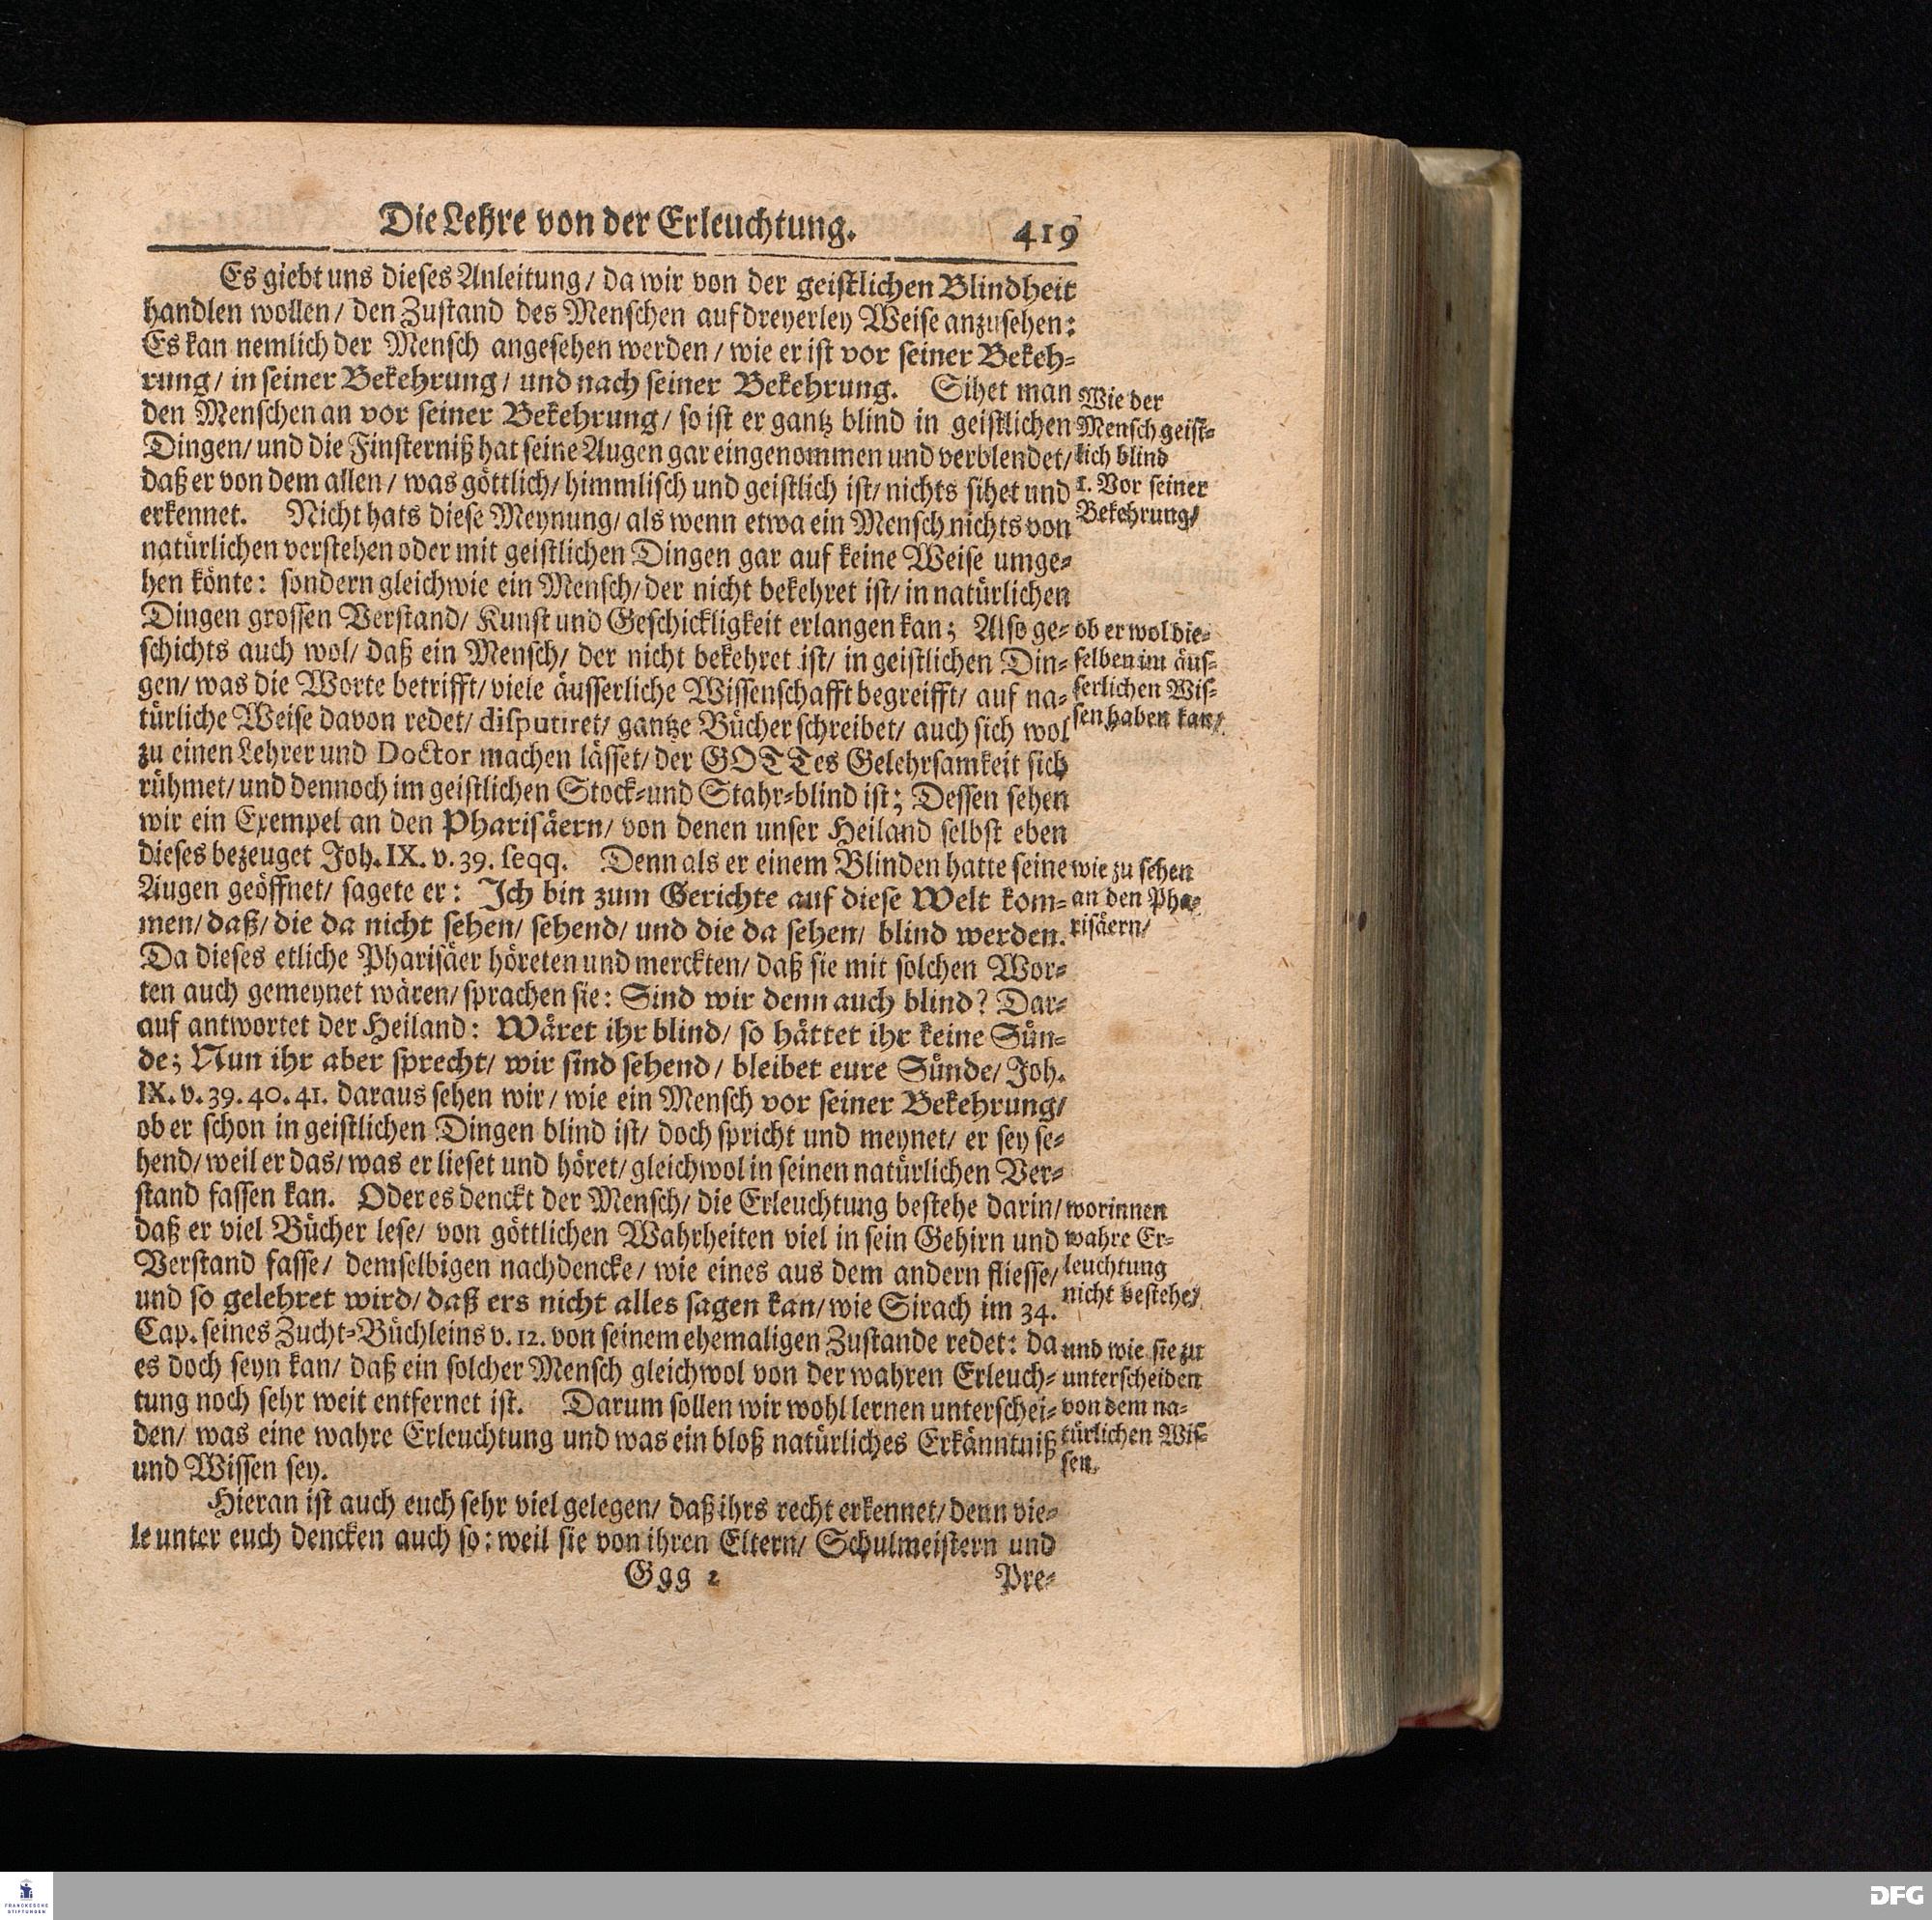 Die Lehre von der Erleuchtung. 419
Es giebt uns dieses Anleitung/ da wir von der geistlichen Blindheit
handlen wollen/ den Zustand des Menschen auf dreyerley Weise anzusehen:
Es kan nemlich der Mensch angesehen werden/ wie er ist vor seiner Bekeh-
rung/ in seiner Bekehrung/ und nach seiner Bekehrung. Sihet man
den Menschen an vor seiner Bekehrung/ so ist er gantz blind in geistlichen
Dingen/ und die Finsterniß hat seine Augen gar eingenommen und verblendet/
daß er von dem allen/ was göttlich/ himmlisch und geistlich ist/ nichts sihet und
erkennet. Nicht hats diese Meynung/ als wenn etwa ein Mensch nichts von
natürlichen verstehen oder mit geistlichen Dingen gar auf keine Weise umge-
hen könte: sondern gleichwie ein Mensch/ der nicht bekehret ist/ in natürlichen
Dingen grossen Verstand/ Kunst und Geschickligkeit erlangen kan; Also ge-
schichts auch wol/ daß ein Mensch/ der nicht bekehret ist/ in geistlichen Din-
gen/ was die Worte betrifft/ viele äusserliche Wissenschafft begreifft/ auf na-
türliche Weise davon redet/ disputiret/ gantze Bücher schreibet/ auch sich wol
zu einen Lehrer und Doctor machen lässet/ der GOTTes Gelehrsamkeit sich
rühmet/ und dennoch im geistlichen Stock-und Stahr-blind ist; Dessen sehen
wir ein Exempel an den Pharisäern/ von denen unser Heiland selbst eben
dieses bezeuget Joh. IX. v. 39. seqq. Denn als er einem Blinden hatte seine
Augen geöffnet/ sagete er: Ich bin zum Gerichte auf diese Welt kom-
men/ daß/ die da nicht sehen/ sehend/ und die da sehen/ blind werden.
Da dieses etliche Pharisäer höreten und merckten/ daß sie mit solchen Wor-
ten auch gemeynet wären/ sprachen sie: Sind wir denn auch blind? Dar-
auf antwortet der Heiland: Wäret ihr blind/ so hättet ihr keine Sün-
de; Nun ihr aber sprecht/ wir sind sehend/ bleibet eure Sünde/ Joh.
IX. v. 39. 40. 41. daraus sehen wir/ wie ein Mensch vor seiner Bekehrung/
ob er schon in geistlichen Dingen blind ist/ doch spricht und meynet/ er sey se-
hend/ weil er das/ was er lieset und höret/ gleichwol in seinen natürlichen Ver-
stand fassen kan. Oder es denckt der Mensch/ die Erleuchtung bestehe darin/
daß er viel Bücher lese/ von göttlichen Wahrheiten viel in sein Gehirn und
Verstand fasse/ demselbigen nachdencke/ wie eines aus dem andern fliesse/
und so gelehret wird/ daß ers nicht alles sagen kan/ wie Sirach im 34.
Cap. seines Zucht-Büchleins v. 12. von seinem ehemaligen Zustande redet: da
es doch seyn kan/ daß ein solcher Mensch gleichwol von der wahren Erleuch-
tung noch sehr weit entfernet ist. Darum sollen wir wohl lernen unterschei-
den/ was eine wahre Erleuchtung und was ein bloß natürliches Erkänntniß
und Wissen sey.
Hieran ist auch euch sehr viel gelegen/ daß ihrs recht erkennet/ denn vie-
le unter euch dencken auch so: weil sie von ihren Eltern/ Schulmeistern und
Ggg 2 Pre-
Wie der
Mensch geist-
lich blind
1. Vor seiner
Bekehrung/
ob er wol die-
selben im äus-
serlichen Wis-
sen haben kan/
wie zu sehen
an den Pha-
risäern/
worinnen
wahre Er-
leuchtung
nicht bestehe/
und wie sie zu
unterscheiden
von dem na-
türlichen Wis-
sen.
FRANCKESCHE
STIFTUNGEN
DFG